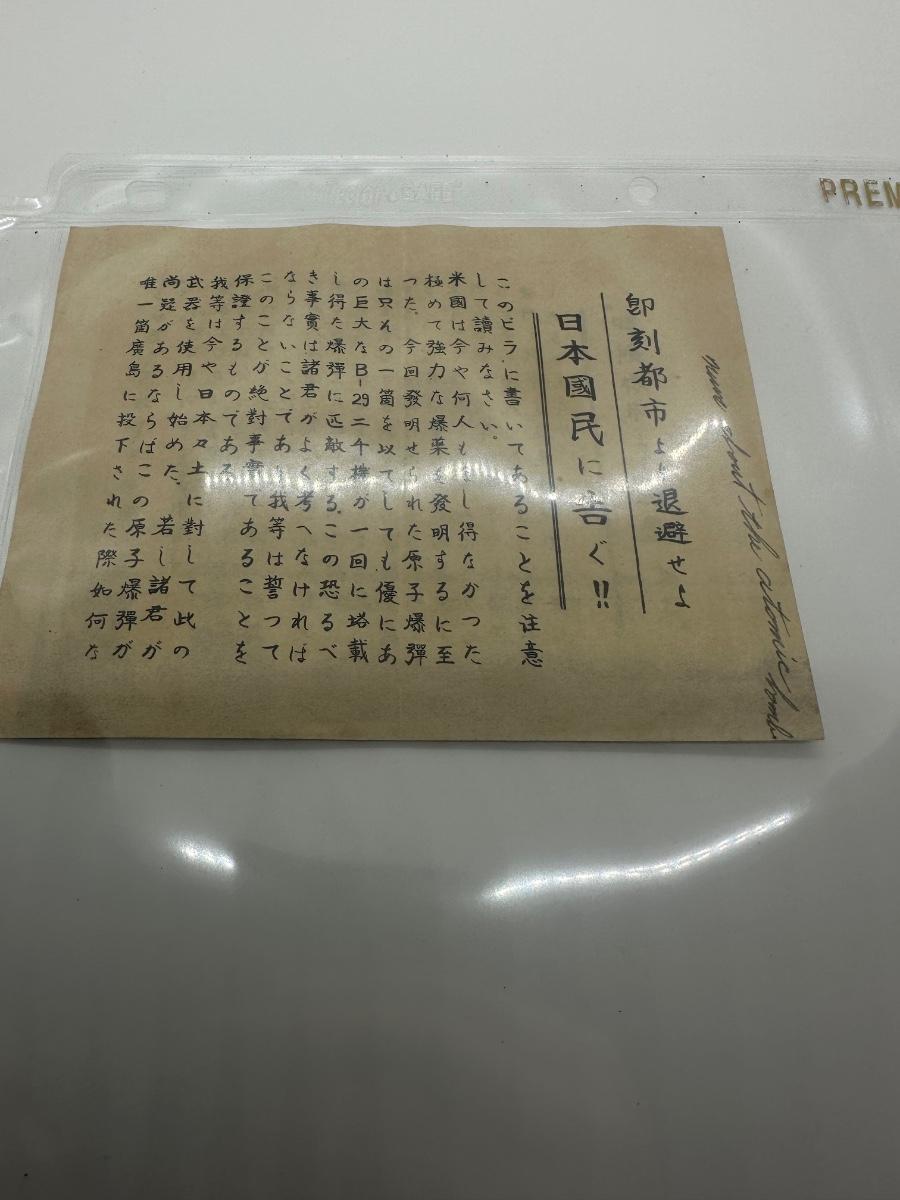 PREM
about the atomic bomb
即刻都市より退避せよ
日本國民に告ぐ!!
このビラに書いてあることを注意
して讀みなさい。
米國は今や何人もなし得なかつた
極めて強力な爆薬を發明するに至
つた、今回發明せられた原子爆彈
は只その一箇を以てしても優にあ
の巨大なB-29二千機が一回に塔載
し得た爆彈に匹敵する、この恐るべ
き事實は諸君がよく考へなければ
ならないことであり我等は誓つて
このことが絶對事實であることを
保證するものである
我等は今や日本々土に對して此の
武器を使用し始めた、若し諸君が
尚疑があるならばこの原子爆彈が
唯一箇廣島に投下された際如何な